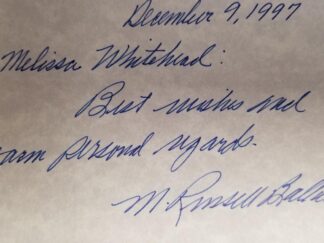 December 9, 1997
Melissa Whitehead:
Best wishes and
warm personal regards.
M. Russell Balla